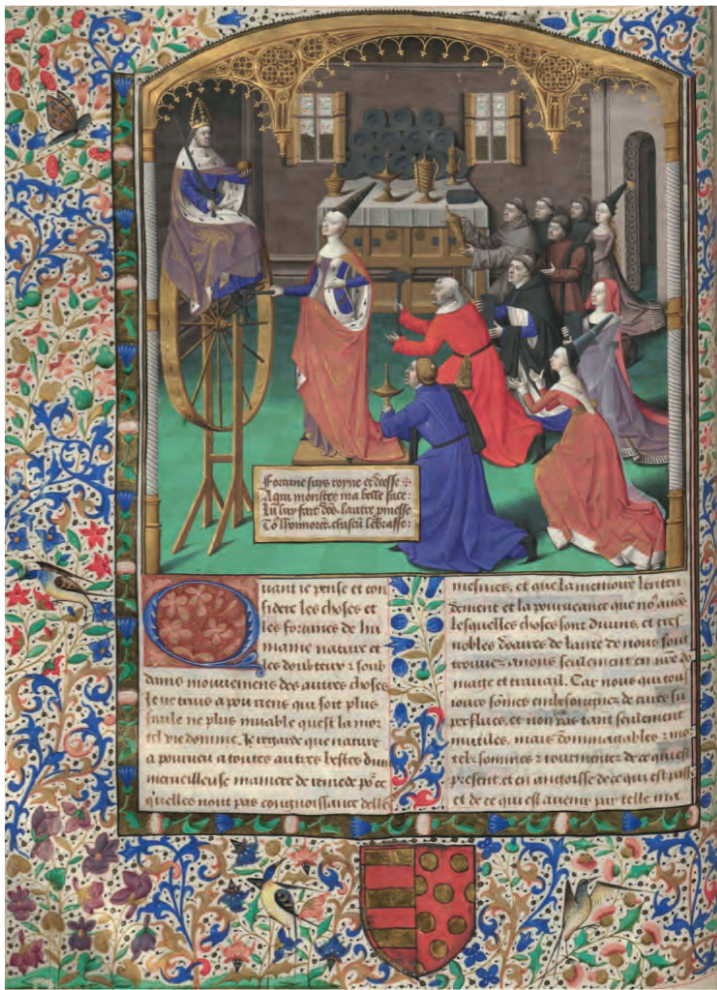 Fortune suys royne et deesse
A qui monstre ma belle face
Lun suy fait dõe lautre
To9 honnorez chascũ lẽbrasse
Quant ie pense et con
sidere les choses et
les fortunes de hu
maine nature et
les doubteux 2 soub
dains mouuemens des autres choses
Je ne treuue a peu riens qui soit plus
fraile ne plus muable quest la mor
tel vie domme. Je regarde que nature
a pourueu a toutes autres bestes dun
merueilleuse maniere de remede
quelles nont pas congnoissance delles
mesmes, et que la memoire lenten
dement et la pourueance que no9 auõs
lesquelles choses sont diuins, et tres
nobles de lame de nous sont
a nous seulement en
mage et trauail. Car nous qui tou
iours sõmes embesongnez de cures su
perflues, et non pas tant seulement
inutiles, mais dommagables 2 mor
telz sommes 2 tourmentez de ce quest
present, et en angoisse de ce qui est passe
et de ce qui est auenir par telle